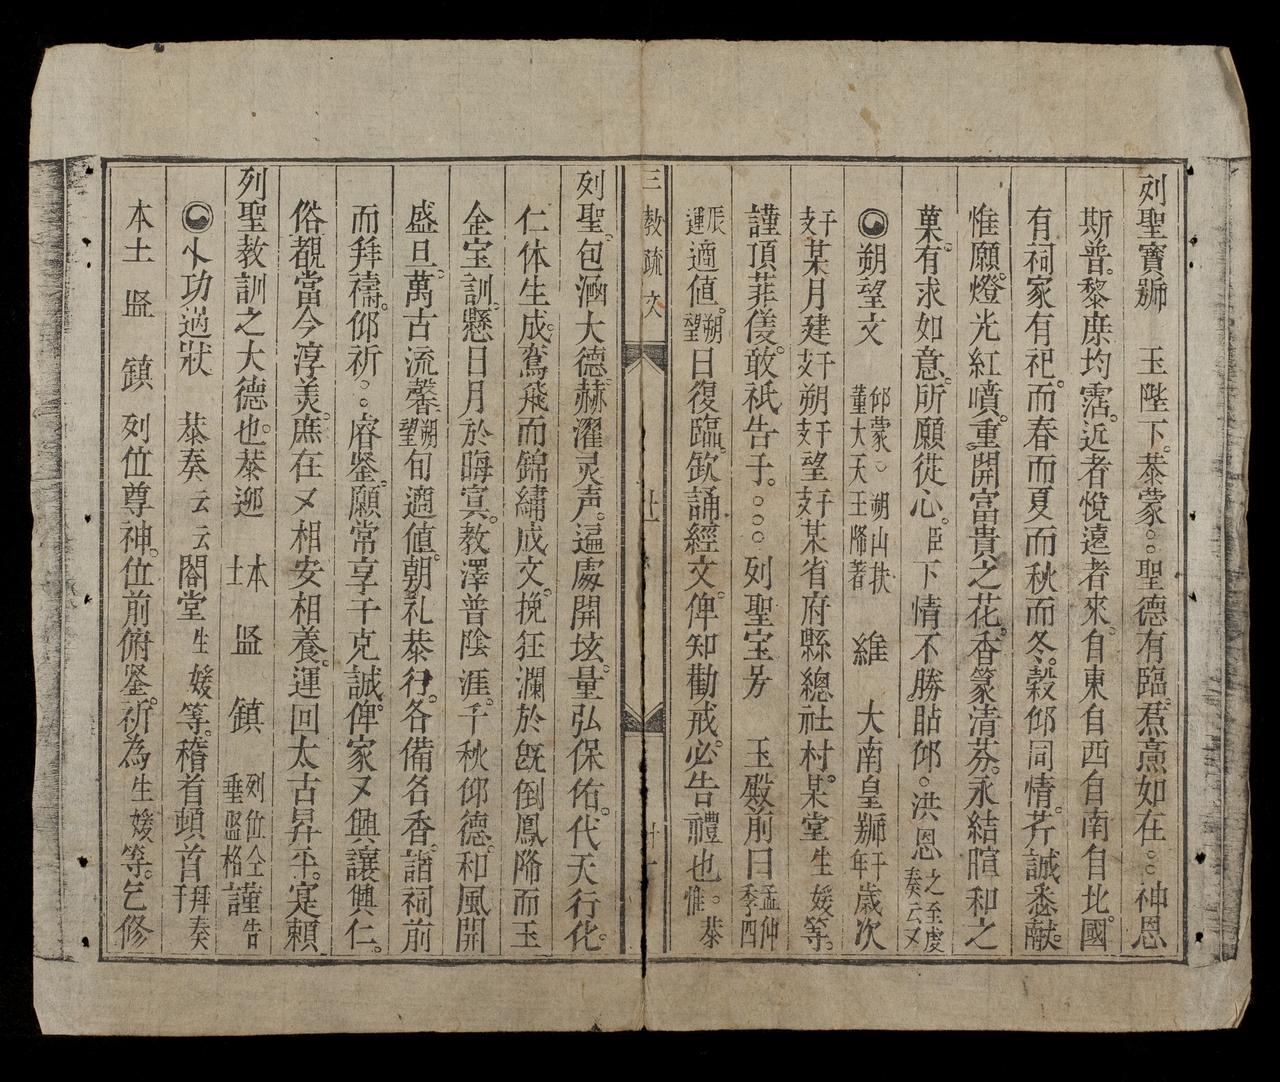 列聖寶号 玉陛下。恭蒙。。聖德有臨。焄熏如在。。神恩
斯普。黎庶均霑。近者悅遠者來。自東自西自南自北。國
有祠家有祀。而春而夏而秋而冬。穀仰同情。芹誠悉献。
惟願。燈光紅噴。重開富貴之花。香篆清芬。永結暄和之
菓。有求如意。所願從心。臣下情不勝貼仰。洪恩之至虔奏云又
朔望文 仰蒙。朔山扶董大天王降著 維 大南皇號干年歲次
干支某月建干支朔干支望干支某省府縣總社村。某堂生媛等。
謹頂菲儀。敢祇告于。。。。列聖宝号 玉殿前曰孟仲季四
辰運適值朔望日復臨。欽誦經文。俾知勸戒。必告禮也。恭惟
三教疏文
列聖。包涵大德。赫濯灵声。遍處開垓。量弘保佑。代天行化。
仁体生成。鸞飛而錦繡成文。挽狂瀾於既倒鳳降而玉
金宝訓。懸日月於晦冥。教澤普陰涯。千秋仰德。和風開
盛旦。萬古流馨。朔望旬適值。朝礼恭行。各備名香。詣祠前
而拜禱。仰祈。。睿鉴。願常享于克誠。俾家又興讓興仁。
俗覩當今淳美。庶在又相安相養。運回太古昇平。寔賴
列聖教訓之大德也。恭迎 本土 监 鎮 列位仝垂监格 謹告
卜功過狀 恭奏云云 閤堂生媛等。稽首頓首拜奏于
本土 监 鎮 列位尊神。位前俯鉴。祈為生媛等。乞修